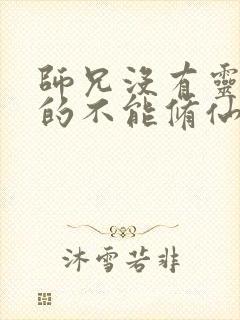 師兄沒有靈
的不能脩仙
沐雪若非